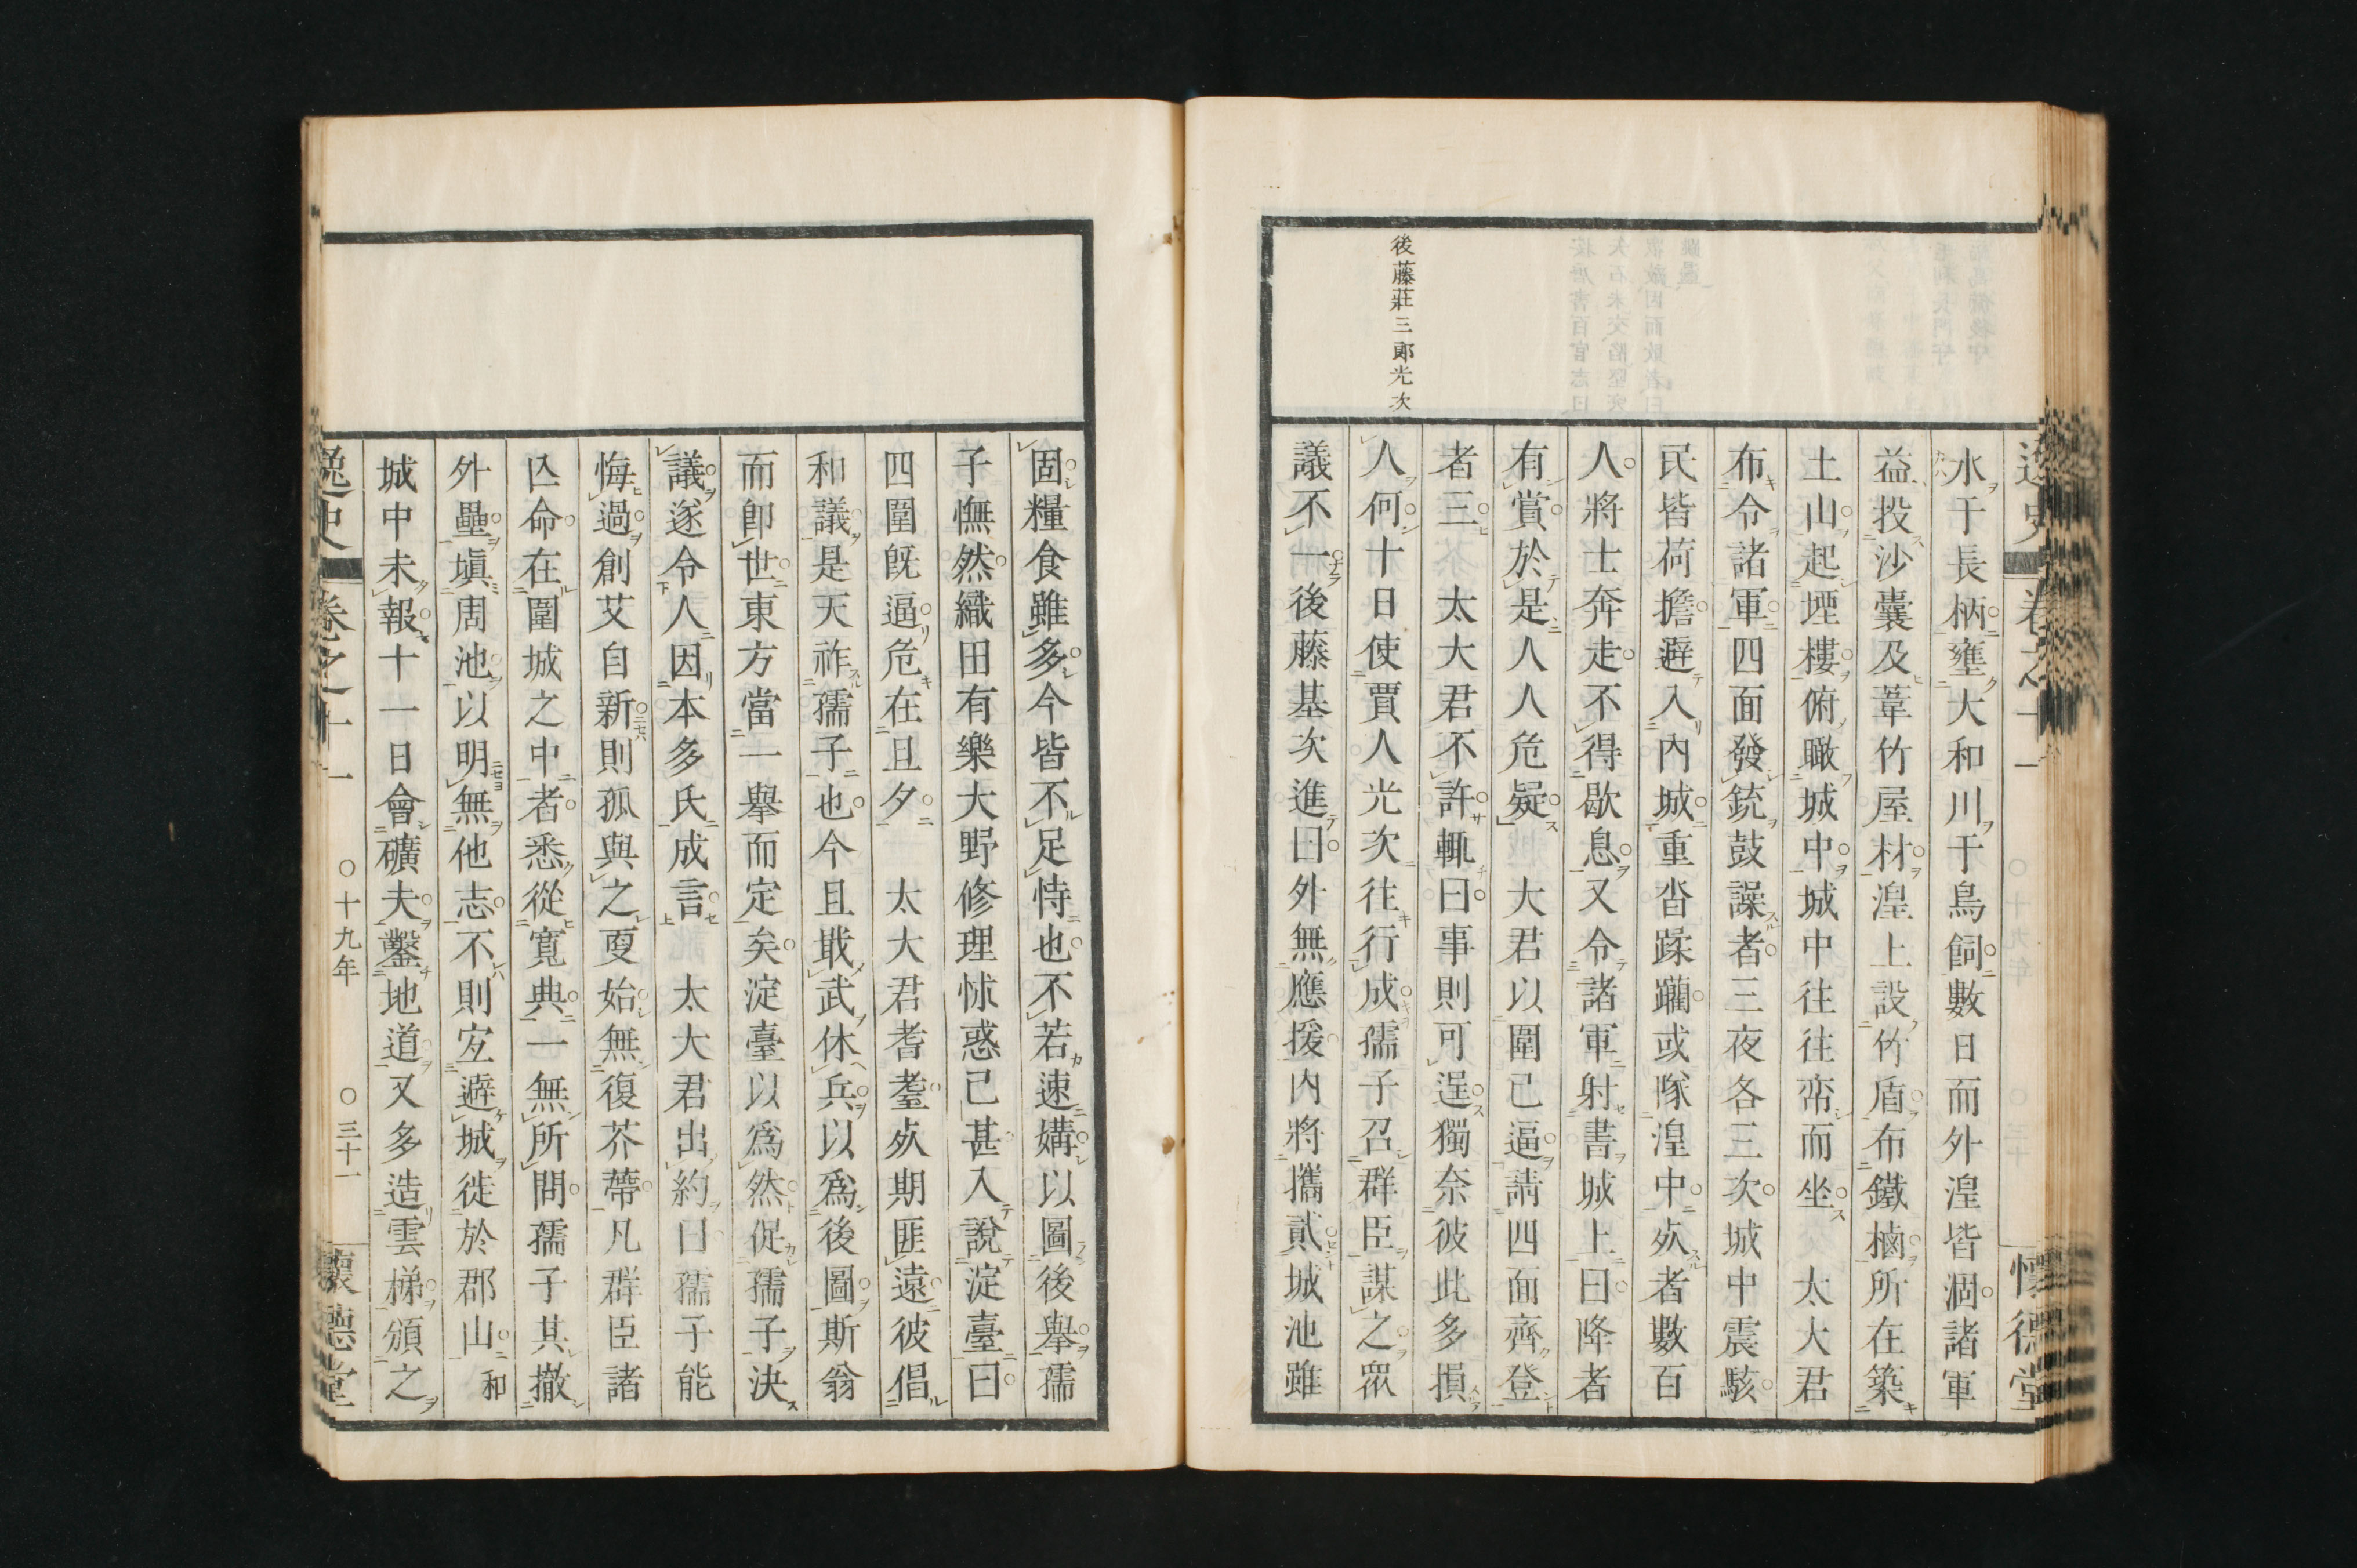 後藤莊三郎光次
水于長柄壅大和川于鳥飼數日而外湟皆涸諸軍
益投沙囊及葦竹屋材湟上設竹盾布鐵楯所在築
土山起堙樓俯瞰城中城中往往帟而坐　太大君
布令諸軍四面發銃鼓譟者三夜各三次城中震駭
民皆荷擔避入內城重沓蹂躪或隊湟中歿者數百
人將士奔走不得歇息又令諸軍射書城上曰降者
有賞於是人人危疑　大君以圍已逼請四面齊登
者三　太大君不許輒曰事則可逞獨奈彼此多損
人何十日使賈人光次往行成孺子召群臣謀之眾
議不一後藤基次進曰外無應援內將攜貳城池雖
固糧食雖多今皆不足恃也不若速媾以圖後舉孺
子憮然織田有樂大野修理怵惑已甚入說淀臺曰
四圍既逼危在旦夕　太大君耆耋歿期匪遠彼倡
和議是天祚孺子也今且戢武休兵以爲後圖斯翁
而卽世東方當一舉而定矣淀臺以爲然促孺子決
議遂令人因本多氏成言　太大君出約曰孺子能
悔過創艾自新則孤與之更始無復芥蔕凡群臣諸
亾命在圍城之中者悉從寬典一無所問孺子其撤
外壘塡周池以明無他志不則宐避城徙於郡山和
城中未報十一日會礦夫鑿地道又多造雲梯頒之
逸史　卷之十一　〇十九年　〇三十一　懷德堂